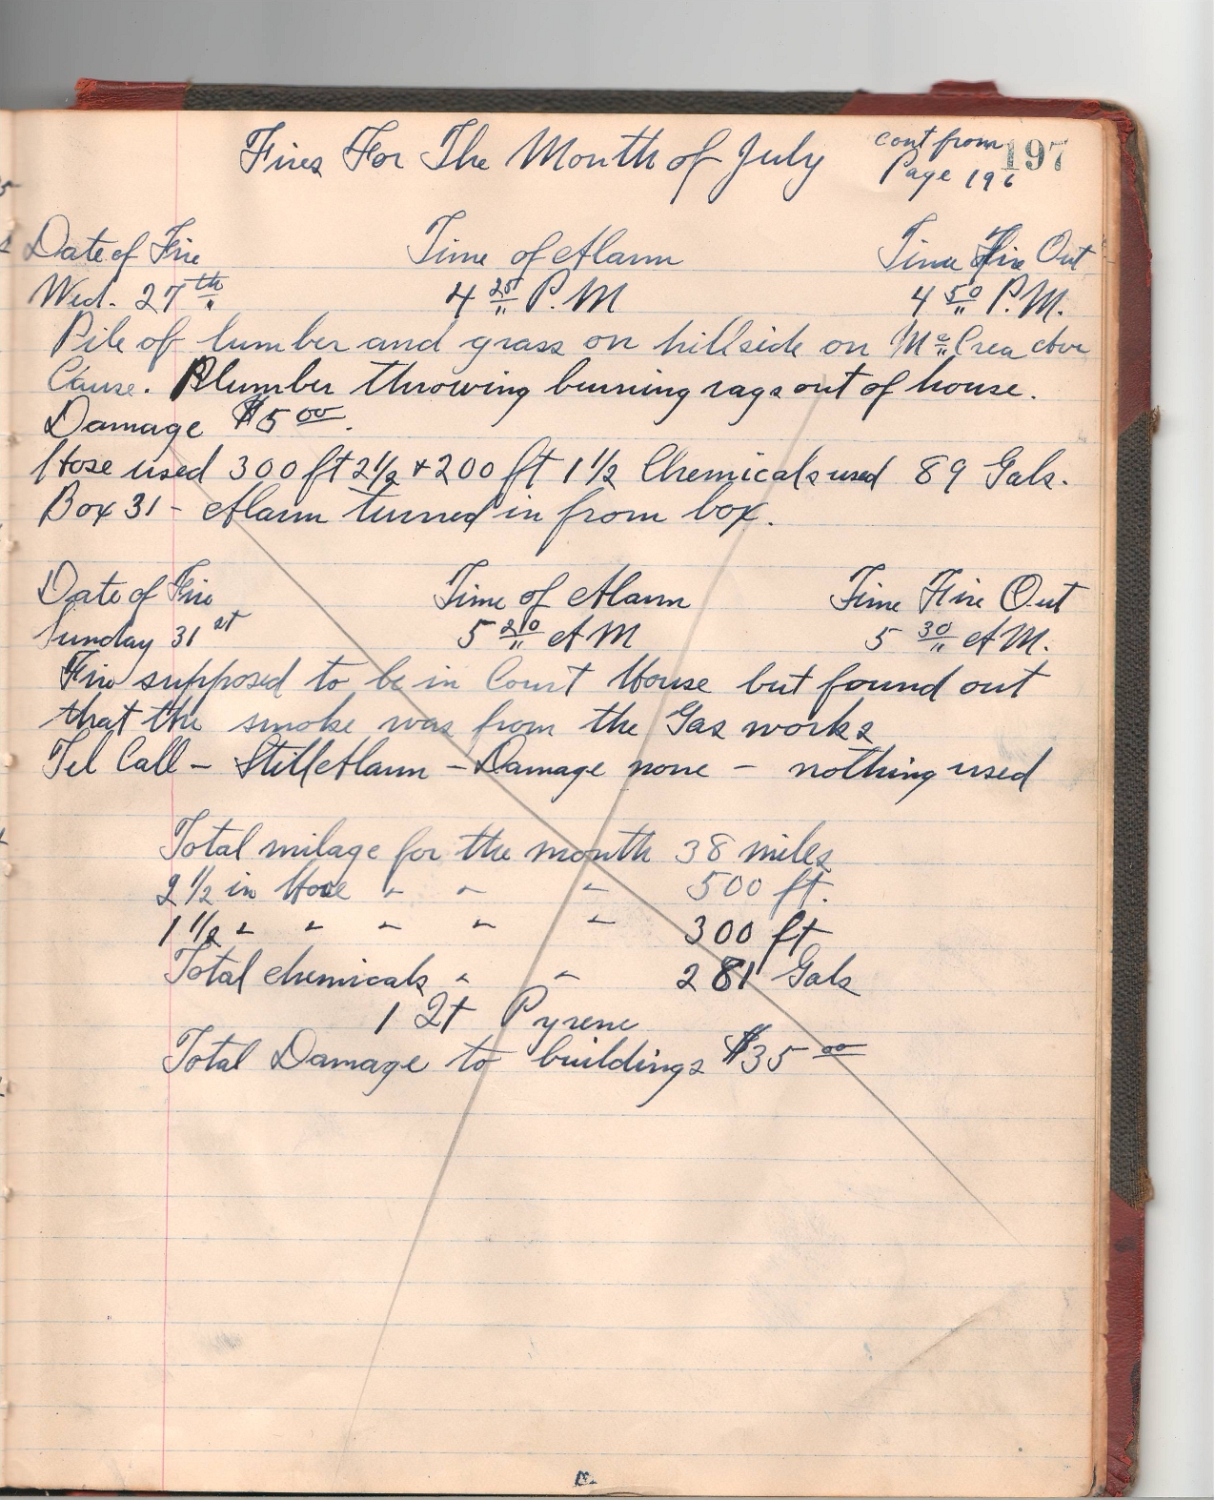 Fires For The Month of July cont from 197
Page 196
Date of Fire Time of Alarm Time Fire Out
Wed. 27th 4 25 P.M 4 50 P.M.
Pile of lumber and grass on hillside on Mc Crea Ave
Cause. Plumber throwing burning rags out of house.
Damage $5 00.
Hose used 300 ft 2 1/2 + 200 ft 1 1/2 Chemicals used 89 Gals.
Box 31 - Alarm turned in from box.
Date of Fire Time of Alarm Time Fire Out
Sunday 31st 5 20 AM 5 30 AM.
Fire supposed to be in Court House but found out
that the smoke was from the Gas works
Tel Call - Still Alarm - Damage none - nothing used
Total milage for the month 38 miles
2 1/2 in Hose " " " 500 ft.
1 1/2 " " " " " 300 ft
Total chemicals " " 281 Gals
1 Qt Pyrene
Total Damage to buildings $35 00